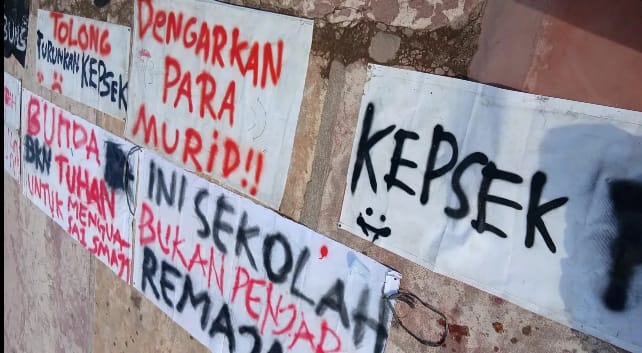 TOLONG
TURUNKAN KEPSEK
DENGARKAN
PARA
MURID!!
KEPSEK
BUNDA
BKN TUHAN
UNTUK MENGUA
SAI SMA
INI SEKOLAH
BUKAN PENJARA
REMAJA